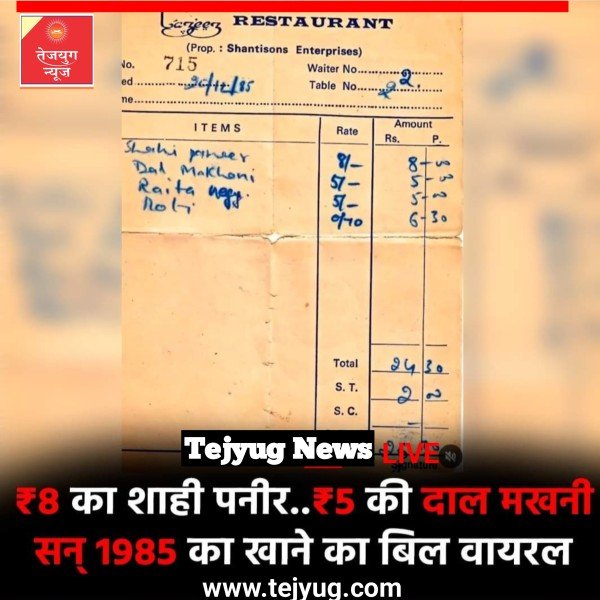 तेजयुग
न्यूज
Lazeez RESTAURANT
(Prop. : Shantisons Enterprises)
No. 715
Waiter No. 2.
ed 20/12/85
Table No. 2
me
ITEMS Rate Amount
Rs. P.
Shahi paneer 8/- 8-00
Dal Makhani 5/- 5-00
Raita 5/- 5-00
Roti 0/70 6-30
Total 24 30
S. T. 2 00
S. C. -
Tejyug News LIVE
Signature
₹8 का शाही पनीर..₹5 की दाल मखनी
सन् 1985 का खाने का बिल वायरल
www.tejyug.com